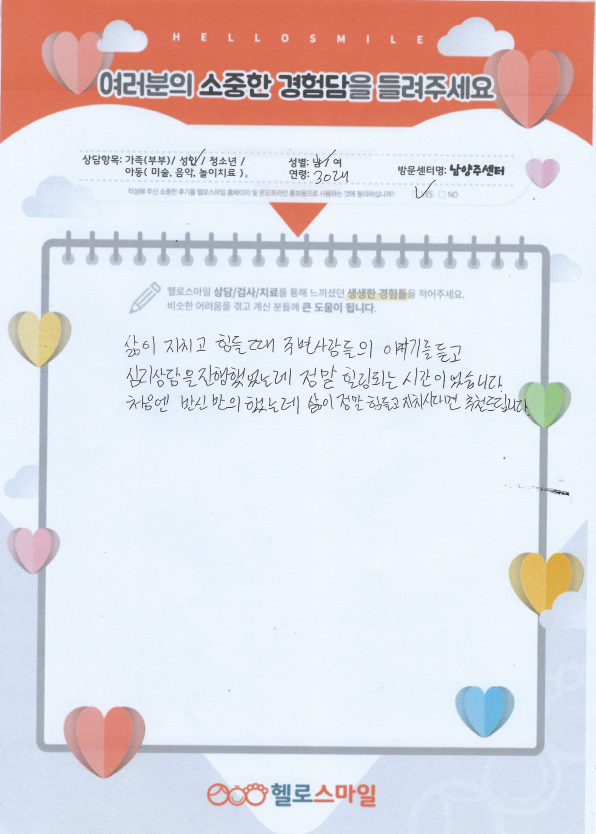 HELLOSMILE
여러분의 소중한 경험담을 들려주세요
상담항목: 가족(부부)/ 성인/ 청소년 / 성별: 남/여
아동( 미술, 음악, 놀이치료 ). 연령: 30대 방문센터명: 남양주센터
작성해 주신 소중한 후기를 헬로스마일 홈페이지 및 온오프라인 홍보용으로 사용하는 것에 동의하십니까? YES □ NO
헬로스마일 상담/검사/치료를 통해 느끼셨던 생생한 경험들을 적어주세요.
비슷한 어려움을 겪고 계신 분들께 큰 도움이 됩니다.
삶이 지치고 힘들때 주변사람들의 이야기를 듣고
심리상담을 진행했었는데 정말 힐링되는 시간이었습니다.
처음엔 반신반의했는데 삶이 정말 힘들고 지치시다면 추천드립니다.
헬로스마일